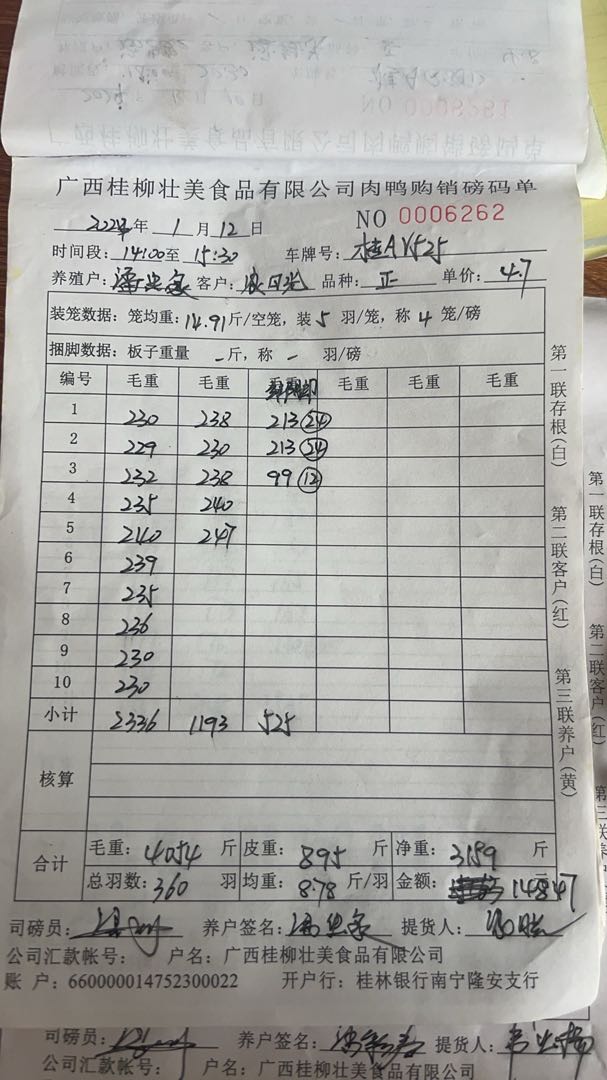 广西桂柳壮美食品有限公司肉鸭购销磅码单
2024年 1 月 12 日 NO 0006262
时间段: 14:00至 15:30 车牌号: 桂A
养殖户: 客户: 品种: 正 单价: 4.7
装笼数据: 笼均重: 14.91斤/空笼, 装 5 羽/笼, 称 4 笼/磅
捆脚数据: 板子重量 - 斤, 称 - 羽/磅
编号 毛重 毛重 毛重 毛重 毛重
1 230 238 213 24
2 229 230 213 24
3 232 238 99 12
4 235 240
5 240 247
6 239
7 235
8 236
9 230
10 230
小计 2336 1193 525
核算
合计 毛重: 4054 斤 皮重: 895 斤 净重: 3159 斤
总羽数: 360 羽 均重: 8.78 斤/羽 金额: 14847 元
司磅员: 养户签名: 提货人:
公司汇款帐号: 户名: 广西桂柳壮美食品有限公司
账 户: 660000014752300022 开户行: 桂林银行南宁隆安支行
第一联存根(白) 第二联客户(红) 第三联养户(黄)
第一联存根(白) 第二联客户(红)
司磅员: 养户签名: 提货人:
公司汇款帐号: 户名: 广西桂柳壮美食品有限公司